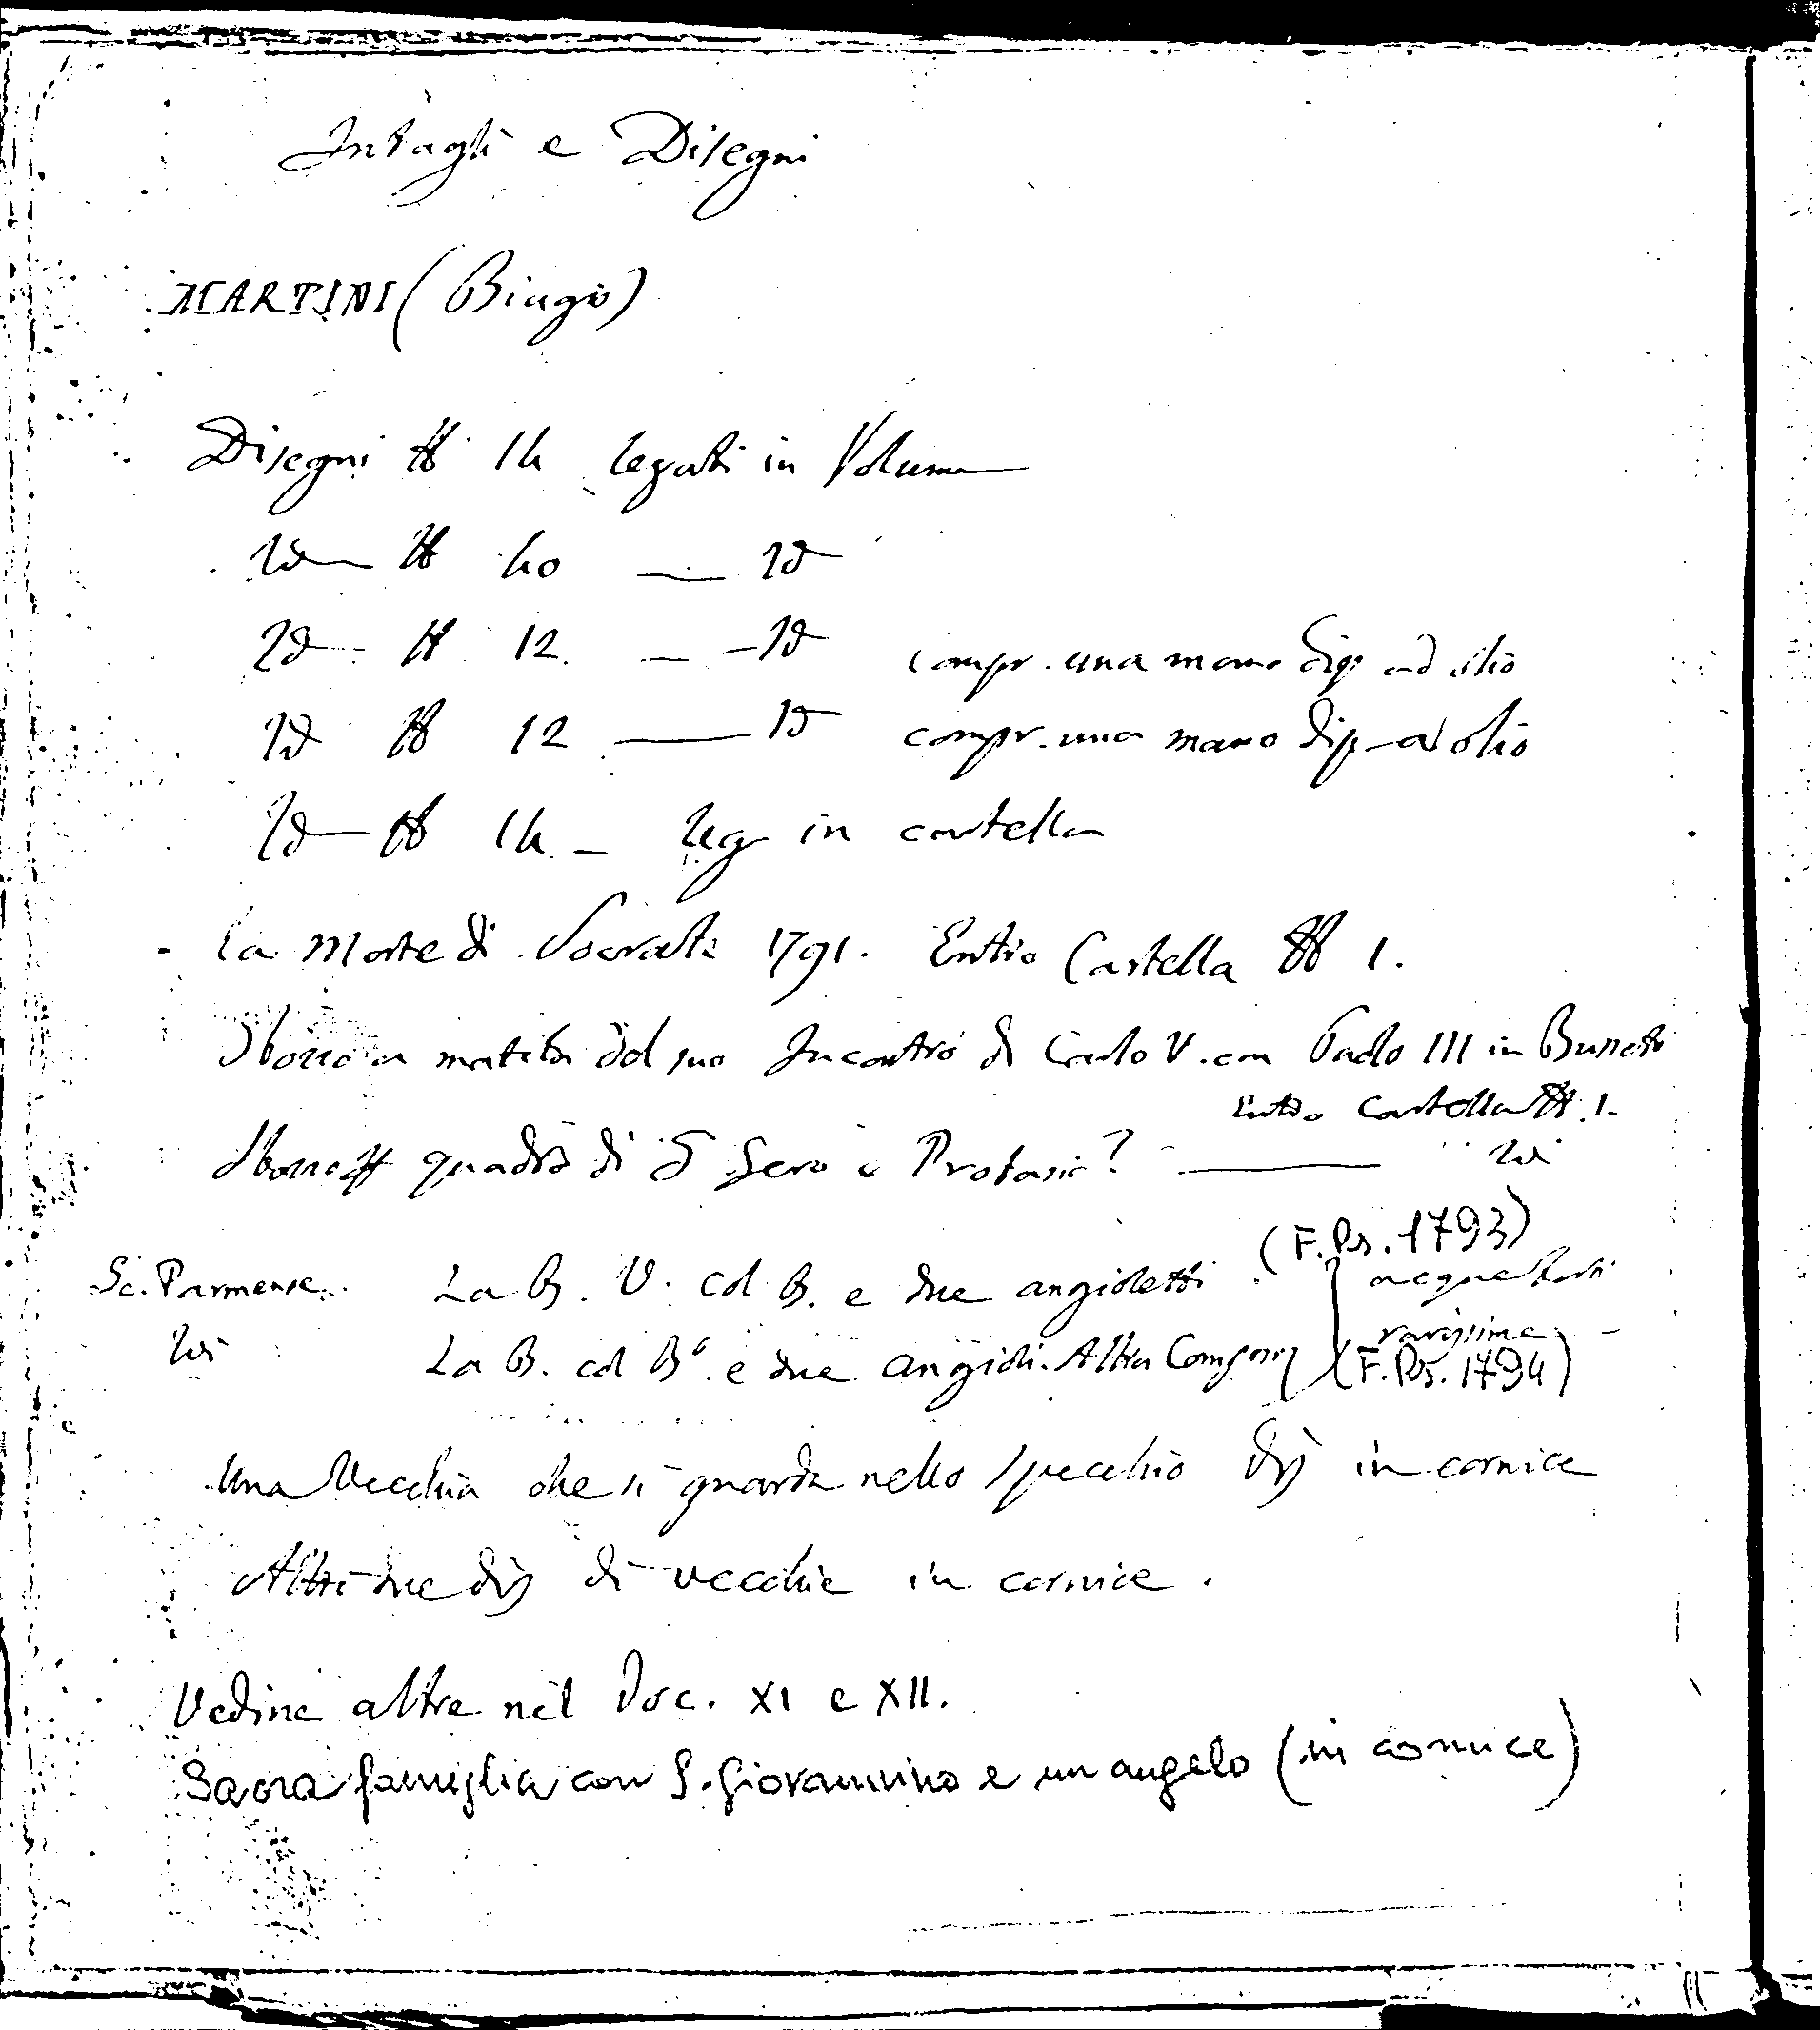 Intagli e Disegni
MARTINI (Biagio)
Disegni N 14 legati in Volume
Id N 40 — Id
Id N 12 — Id compr. una mano dip ad olio
Id N 12 — Id compr. una mano dip ad olio
Id N 14 — leg in cartella
La Morte di Socrate 1791. Entro Cartella N 1.
Sbozzo a matita del suo Incontro di Carlo V. con Paolo III in Busseto
Entro Cartella N. 1.
Sbozzo quadro di S e Protasio? — Ivi
(F. Ps. 1793)
Sc. Parmense. La B. V. col B. e due angioletti acque forti
rarissime
Ivi La B. col Bo. e due angioli. Altra Compos (F. Ps. 1794)
Una Vecchia che si guarda nello specchio dis in cornice
Altri due dis di vecchie in cornice.
Vedine altre nel Doc. XI e XII.
Sacra famiglia con S. Giovannino e un angelo (in cornice)